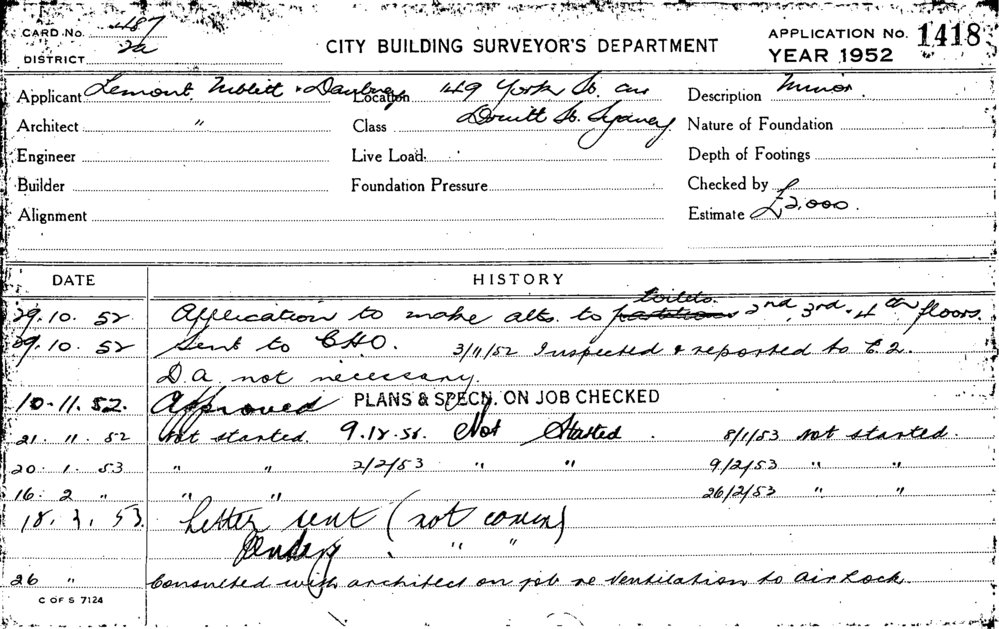 CARD NO. 487
DISTRICT 2a
CITY BUILDING SURVEYOR'S DEPARTMENT
APPLICATION NO. 1418
YEAR 1952
Applicant Lemont, Niblett & Daubney
Location 149 York St. cnr
Druitt St. Sydney
Description Minor.
Architect "
Class
Nature of Foundation
Engineer
Live Load
Depth of Footings
Builder
Foundation Pressure
Checked by
Alignment
Estimate £2,000.
DATE HISTORY
29.10.52 Application to make alts. to partitions toilets 2nd, 3rd & 4th floors.
29.10.52 Sent to CHO. 3/11/52 Inspected & reported to
D.A. not necessary.
10.11.52. Approved PLANS & SPECN. ON JOB CHECKED
21.11.52 Not started. Not Started. 8/1/53 Not started.
20.1.53 " " 2/2/53 " " 9/2/53 " "
16.2 " " " 26/2/53 " "
18.3.53. Letter sent (not comm)
" "
26 " Consulted with architect on job re Ventilation to Air Lock.
C OF S 7124